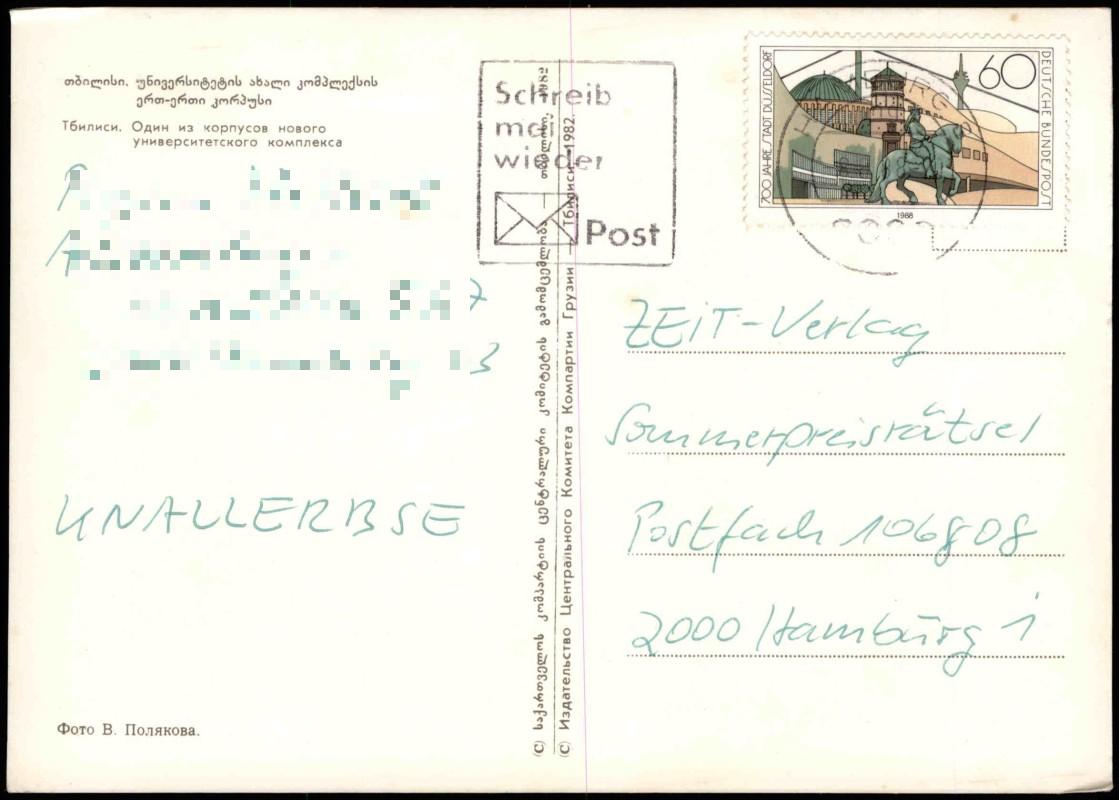 თბილისი. უნივერსიტეტის ახალი კომპლექსის
ერთ-ერთი კორპუსი
Тбилиси. Один из корпусов нового
университетского комплекса
KNALLERBSE
Фото В. Полякова.
(C) საქართველოს კომპარტიის ცენტრალური კომიტეტის გამომცემლობა — თბილისი, 1982
(C) Издательство Центрального Комитета Компартии Грузии — Тбилиси, 1982.
Schreib
mal
wieder
Post
60
DEUTSCHE BUNDESPOST
700 JAHRE STADT DÜSSELDORF
1988
ZEiT-Verlag
Sommerpreisrätsel
Postfach 106808
2000 Hamburg 1